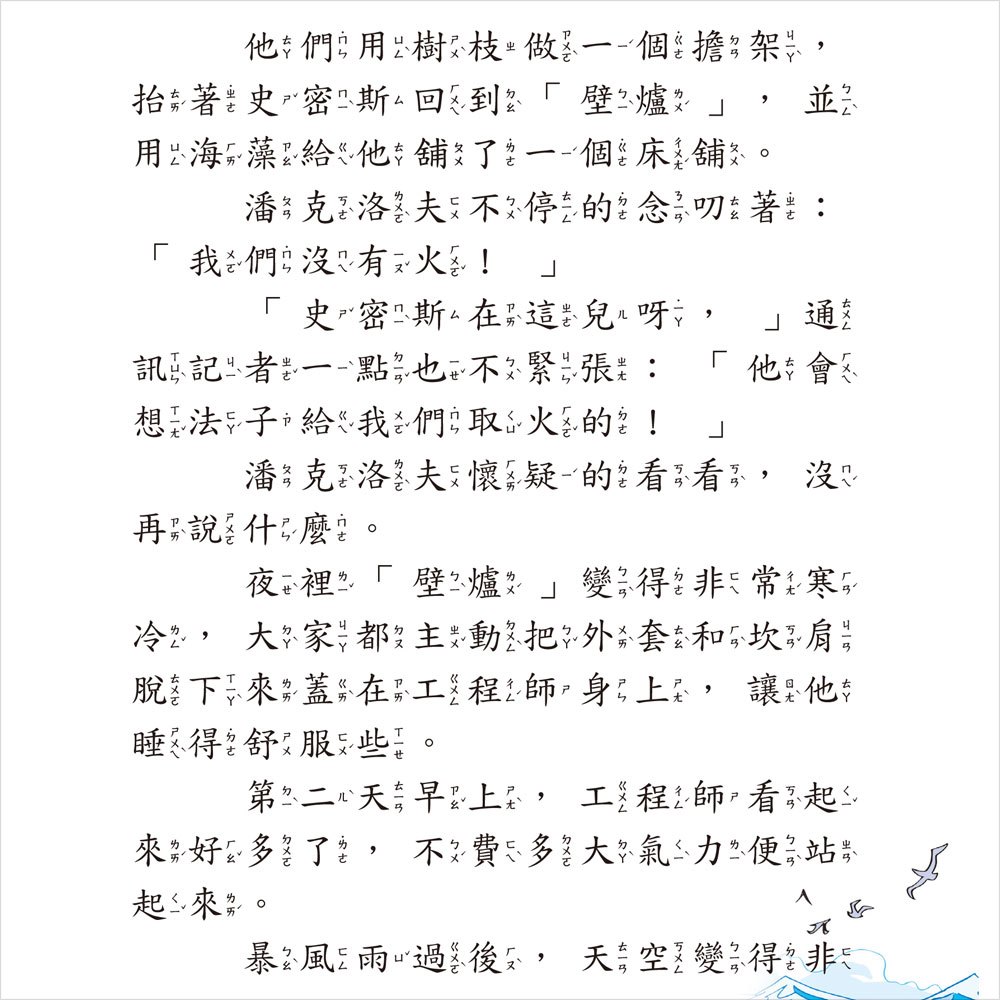 他們用樹枝做一個擔架，
抬著史密斯回到「壁爐」，並
用海藻給他舖了一個床舖。
潘克洛夫不停的念叨著：
「我們沒有火！」
「史密斯在這兒呀，」通
訊記者一點也不緊張：「他會
想法子給我們取火的！」
潘克洛夫懷疑的看看，沒
再說什麼。
夜裡「壁爐」變得非常寒
冷，大家都主動把外套和坎肩
脫下來蓋在工程師身上，讓他
睡得舒服些。
第二天早上，工程師看起
來好多了，不費多大氣力便站
起來。
暴風雨過後，天空變得非